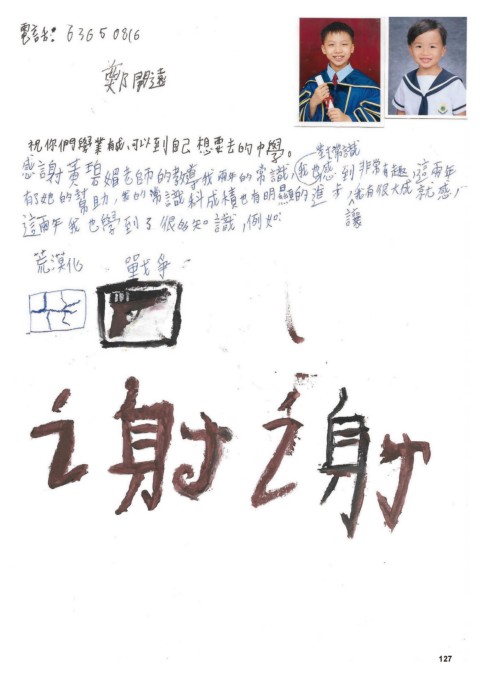 電話：6365 0816
鄭開遠
祝你們學業有成,可以到自己想要去的中學。
對常識
感謝黃碧媚老師的教導我兩年的常識,我也感到非常有趣,這兩年
有了她的幫助,我的常識科成積也有明顯的進才,我有很大成就感,
讓
這兩年我也學到了很多知識,例如
荒漠化 戰爭
謝謝
127